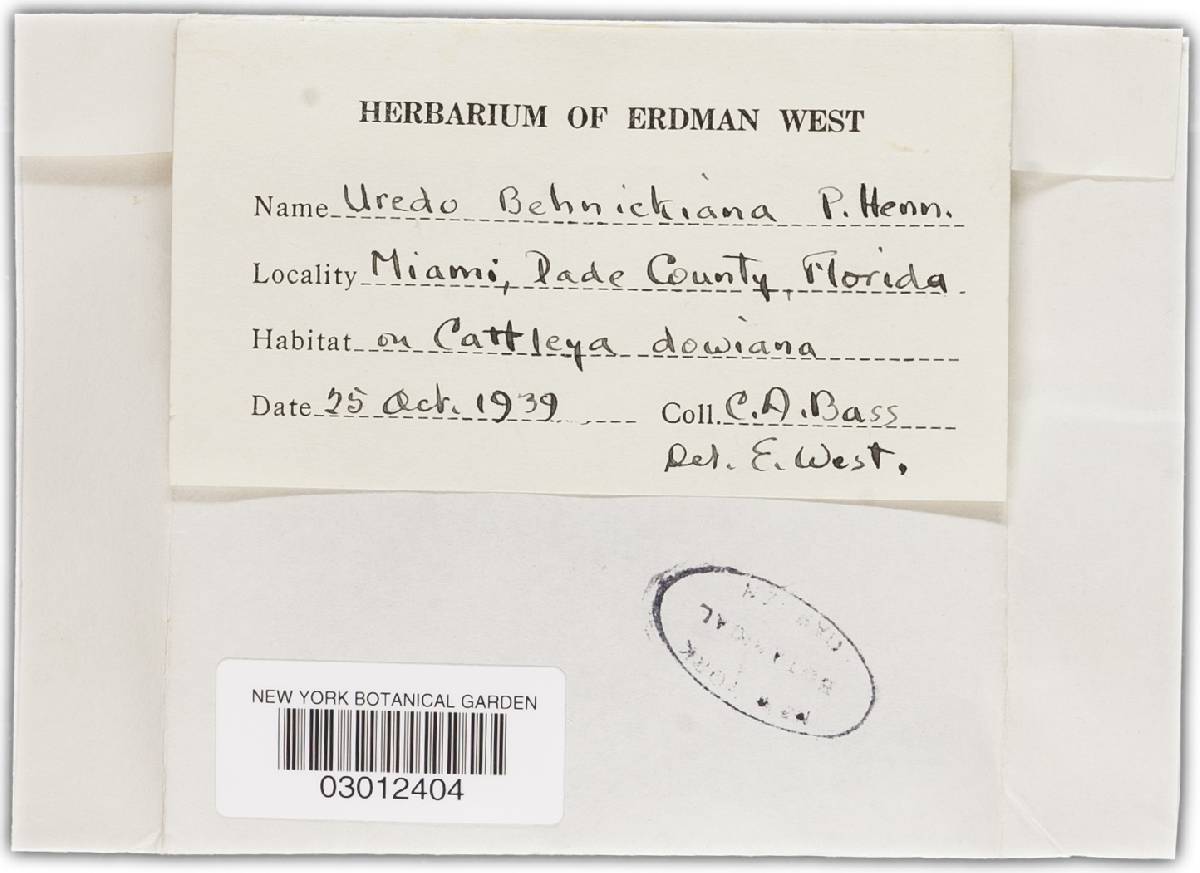 HERBARIUM OF ERDMAN WEST
Name Uredo Behnickiana P. Henn.
Locality Miami, Dade County, Florida
Habitat on Cattleya dowiana
Date 25 Oct. 1939 Coll. C.A. Bass
Det. E. West.
YORK
BOTANICAL
NEW YORK BOTANICAL GARDEN
03012404